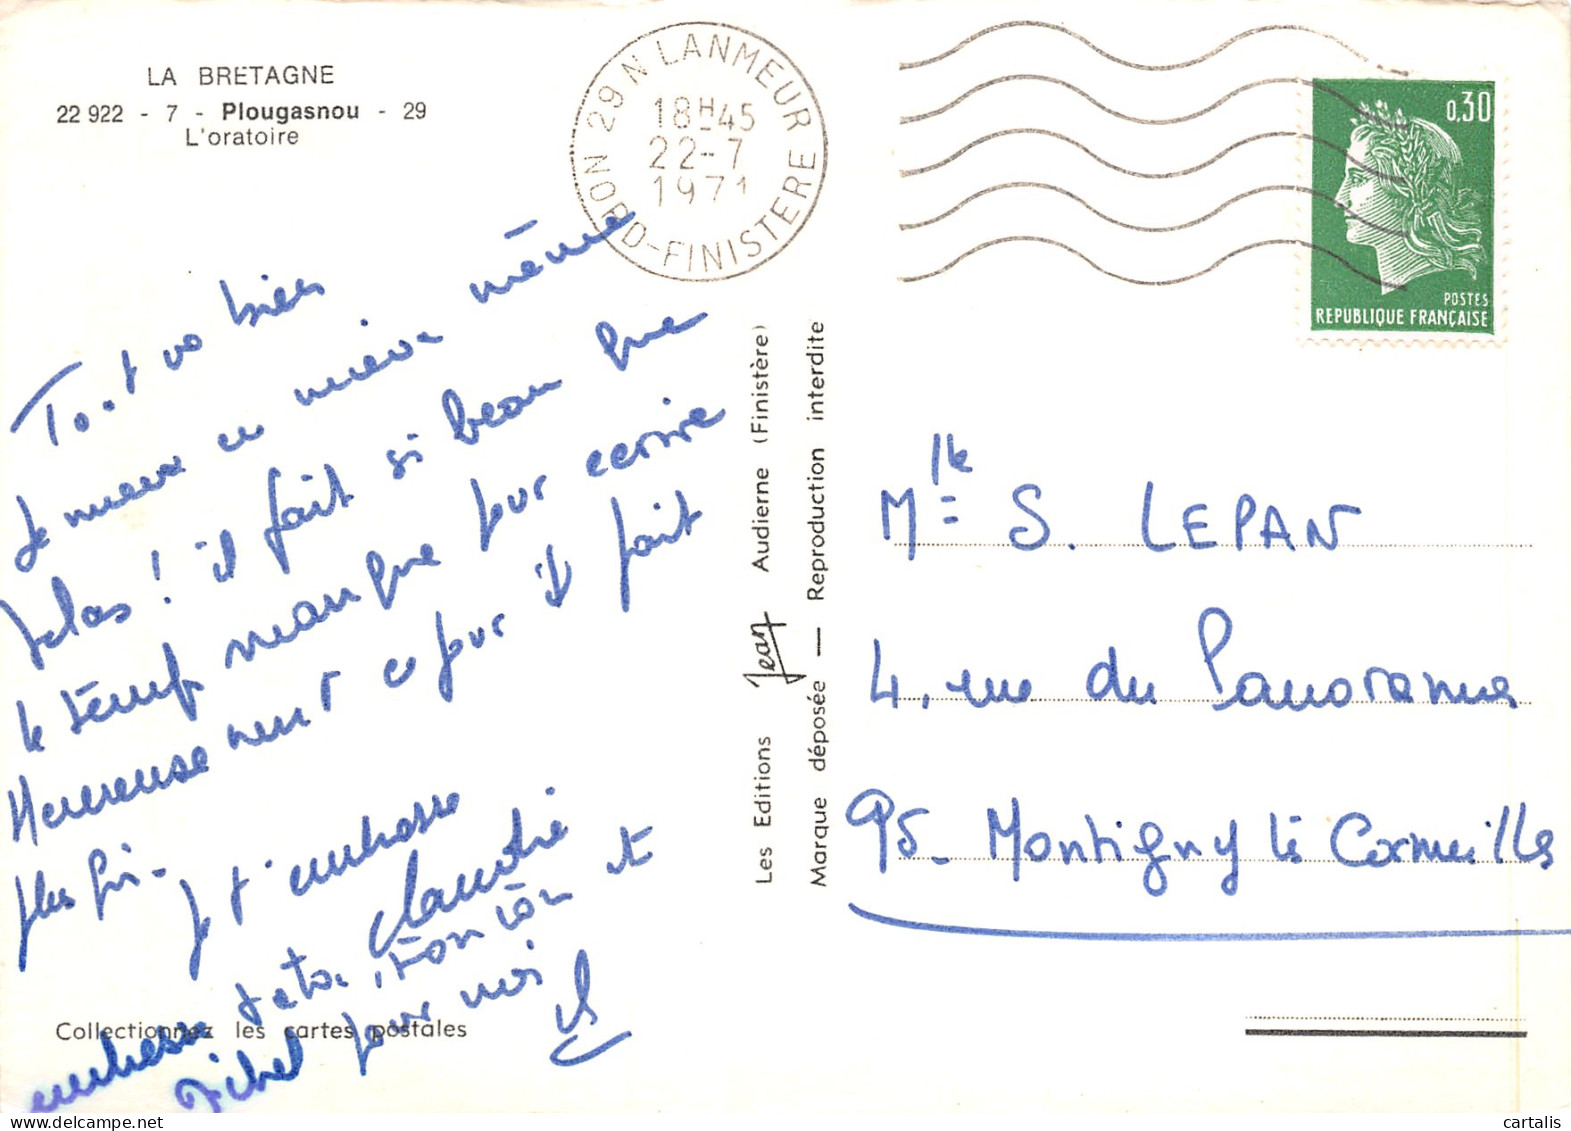 LA BRETAGNE
22 922 - 7 - Plougasnou - 29
L'oratoire
29 N LANMEUR
18H45
22-7
1971
NORD-FINISTERE
0,30
POSTES
REPUBLIQUE FRANÇAISE
Tout va bien
de mieux en mieux même
Helas! il fait si beau que
le temps manque pour ecrire
Heureusement ce jour il fait
plus gris.
Je t'embrasse
Claudie
embrasse tata, tonton et
Michel pour moi
Cl
Les Editions Jean Audierne (Finistère)
Marque déposée — Reproduction interdite
Collectionnez les cartes postales
Mlle S. LEPAN
4, rue du Panorama
95- Montigny lès Cormeilles
cartalis
www.delcampe.net